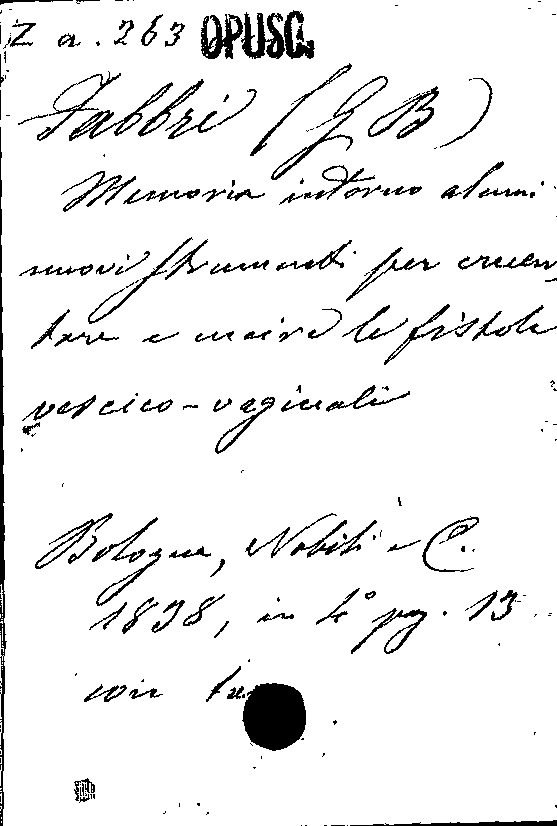 Z a. 263 OPUSC.
Fabbri (G B)
Memoria intorno alcuni
nuovi strumenti per cruen-
tare e unire le fistole
vescico-vaginali
Bologna, Nobili e C.
1838, in 4° pag. 13
con